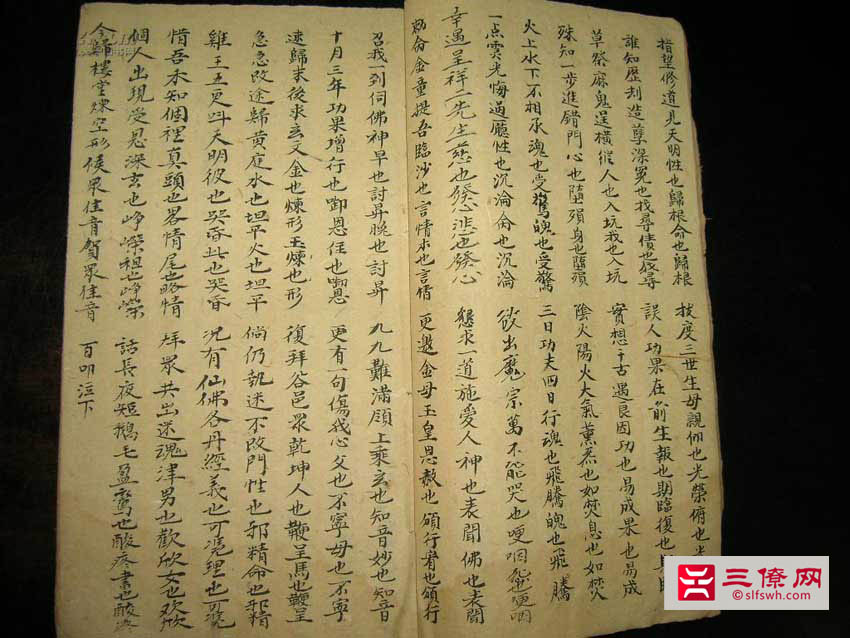 指望修道見天明性也歸根命也歸根
誰知歷刦造孽深冤也找尋債也找尋
草祭麻鬼逞橫縱人也入坑我也入坑
殊知一步進錯門心也墮殞身也墮殞
火上水下不相承魂也受驚魄也受驚
一点靈光悔過廳性也沉淪命也沉淪
幸遇呈祥一先生慈也發心悲也發心
勅命金童提吾臨沙也言情木也言情
拔度三世生母親仰也光榮俯也光
誤人功果在前生報也期臨復也期臨
實想千古遇良因功也易成果也易成
陰火陽火大氣薰蒸也如焚息也如焚
三日功夫四日行魂也飛騰魄也飛騰
欲出魔宗萬不能哭也哽咽怨也哽咽
懇求一道施愛人神也表聞佛也表聞
更邀金母玉皇恩赦也頒行宥也頒行
召我一到伺佛神早也討昇晚也討昇
十月三年功果增行也啣恩住也啣恩
速歸末後求玄文金也煉形玉煉也形
急急改途歸黃庭水也坦平火也坦平
雞王五更呌天明彼也哭昏此也哭昏
惜吾未知個裡真頭也畧情尾也略情
個人出現受恩深玄也崢嶸祖也崢嶸
今歸樓堂煉空形候眾佳音賀眾佳音
九九難滿領上乘玄也知音妙也知音
更有一句傷我心父也不寧母也不寧
復拜谷邑眾乾坤人也鞭呈馬也鞭呈
倘仍執迷不改門性也邪精命也邪精
况有仙佛各丹經義也可憑理也可憑
拜眾共出迷魂津男也歡欣女也欢欣
話長夜短鵝毛盈鸞也酸疼書也酸疼
百叩注下
三僚网
slfswh.com